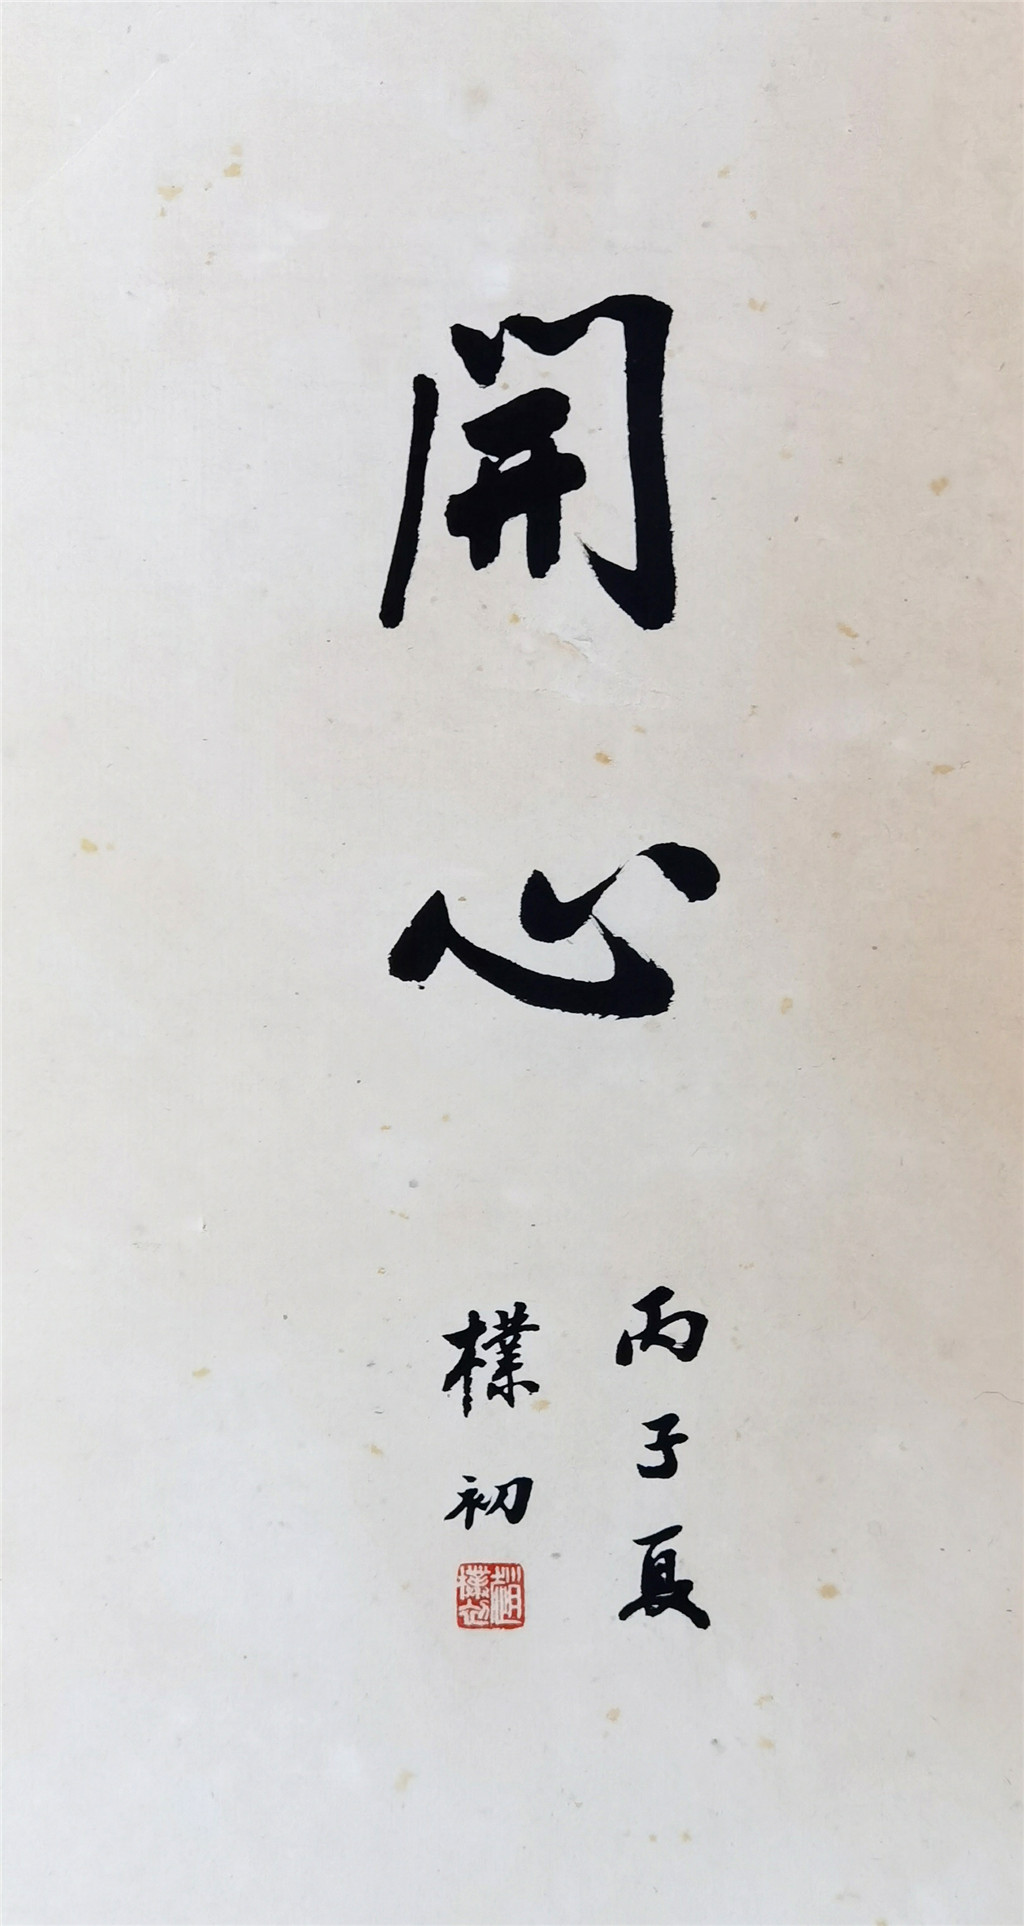 開心
丙子夏
樸初
趙樸初